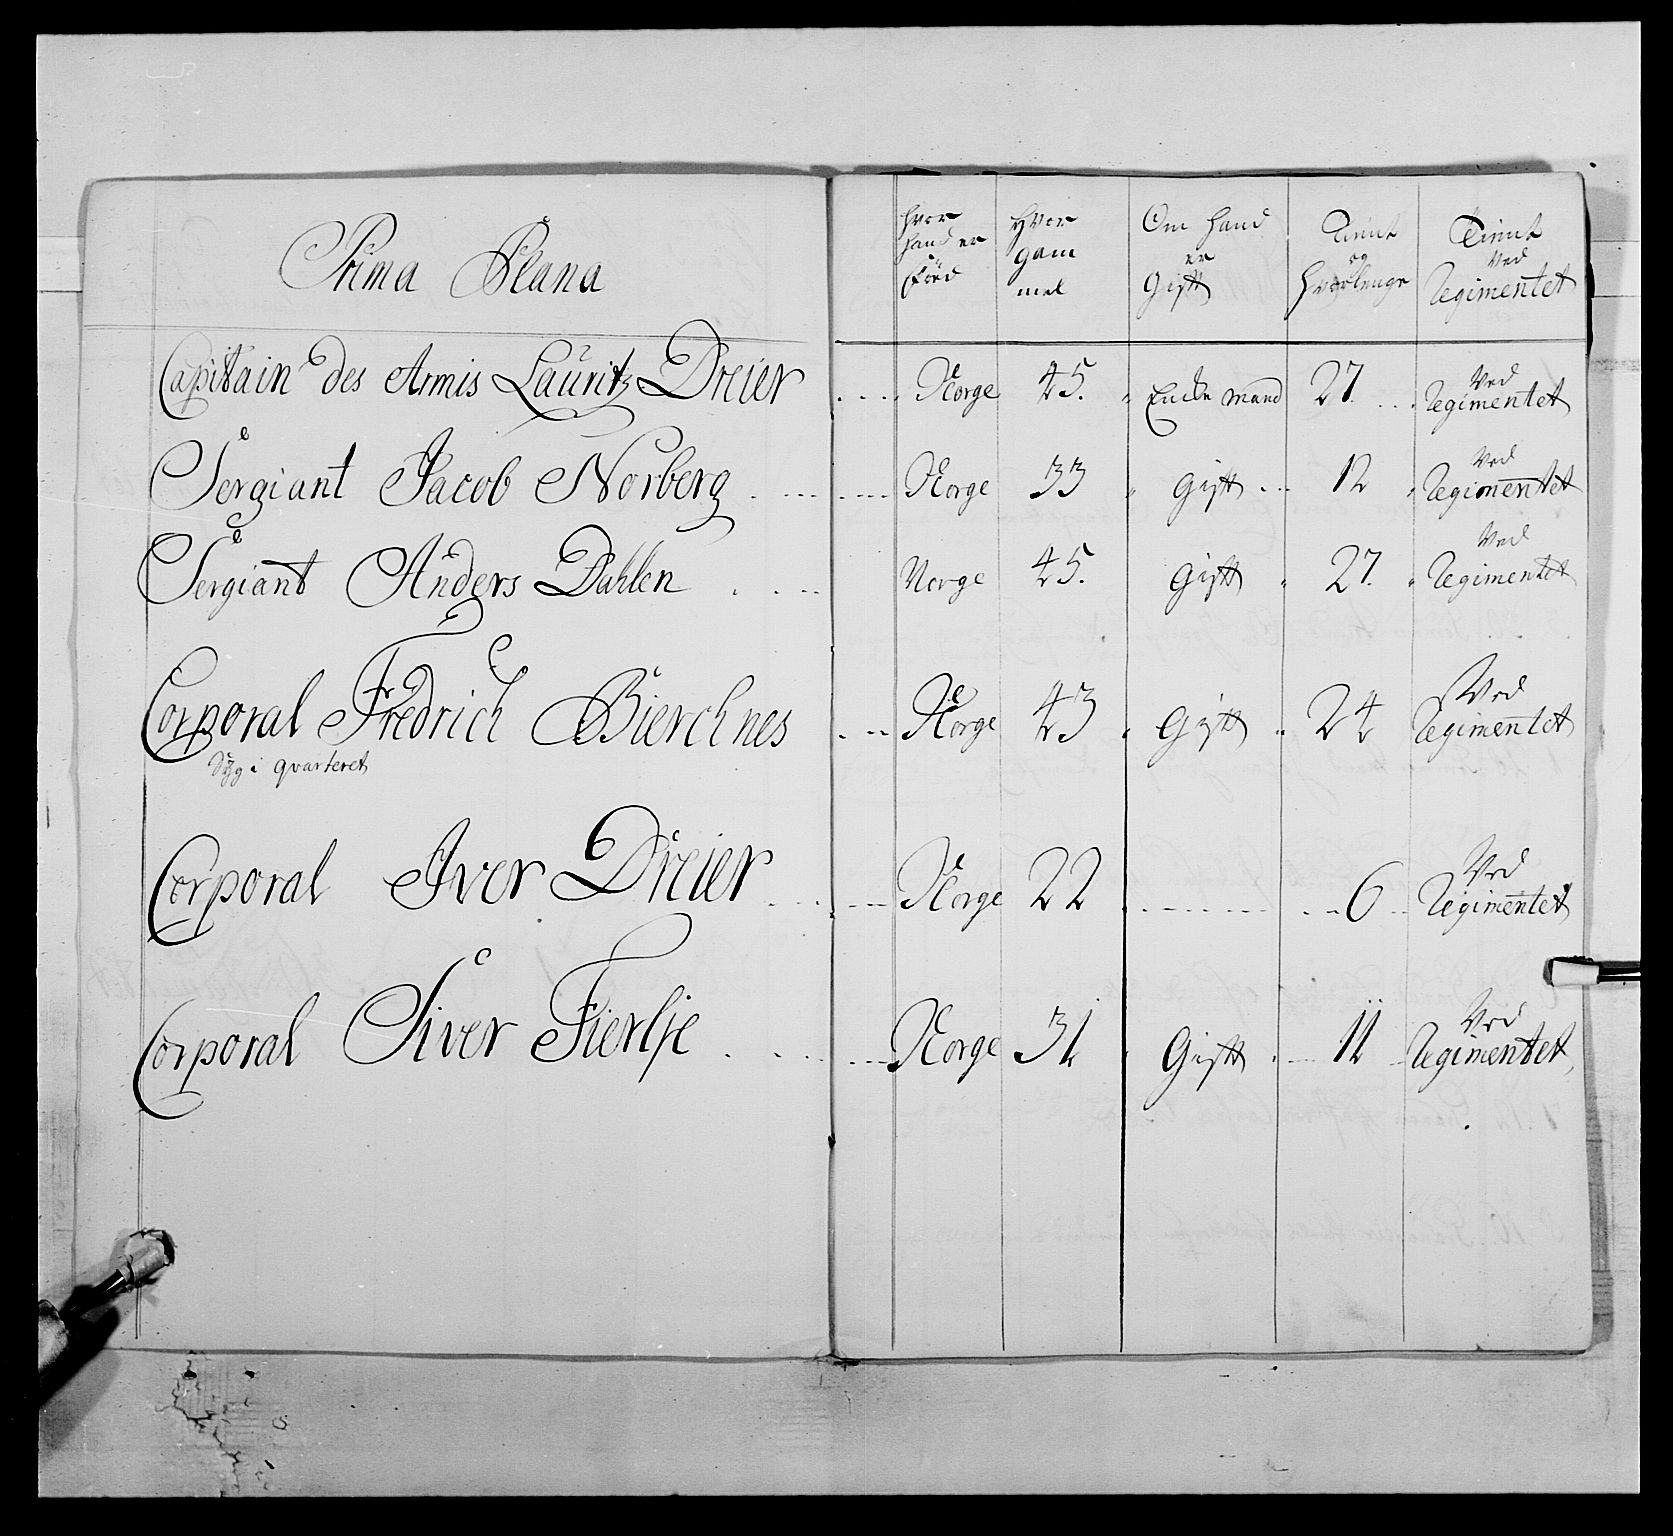 Prima Plana
Hvor hand er föed
Hvor gam mel
Om hand er Gift
Tient og Hvorlenge
Tient Ved Regimentet
Capitain des Armis Lauritz Dreier .... Norge 45. Encke mand 27. ... Ved Regimentet
Sergiant Jacob Norberg ..... Norge 33 Gift ... 12 Ved Regimentet
Sergiant Anders Dahlen .... Norge 45. Gift 27. Ved Regimentet
Corporal Fredrich Bierchnes ... Norge 43 Gift 24 Ved Regimentet
Syg i qvarteret
Corporal Iver Dreier ..... Norge 22 ........ 6 Ved Regimentet
Corporal Siver ..... Norge 31 Gift ... 11 Ved Regimentet